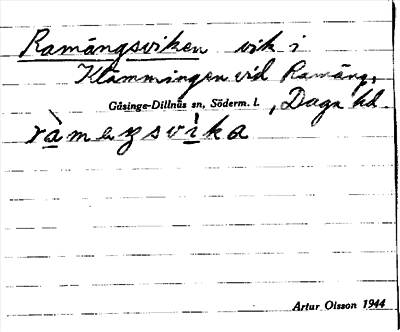 Ramängsviken vik i
Klämmingen vid Ramäng,
Gåsinge-Dillnäs sn, Söderm. l. , Daga hd.
ràmeŋsvìka
Artur Olsson 1944